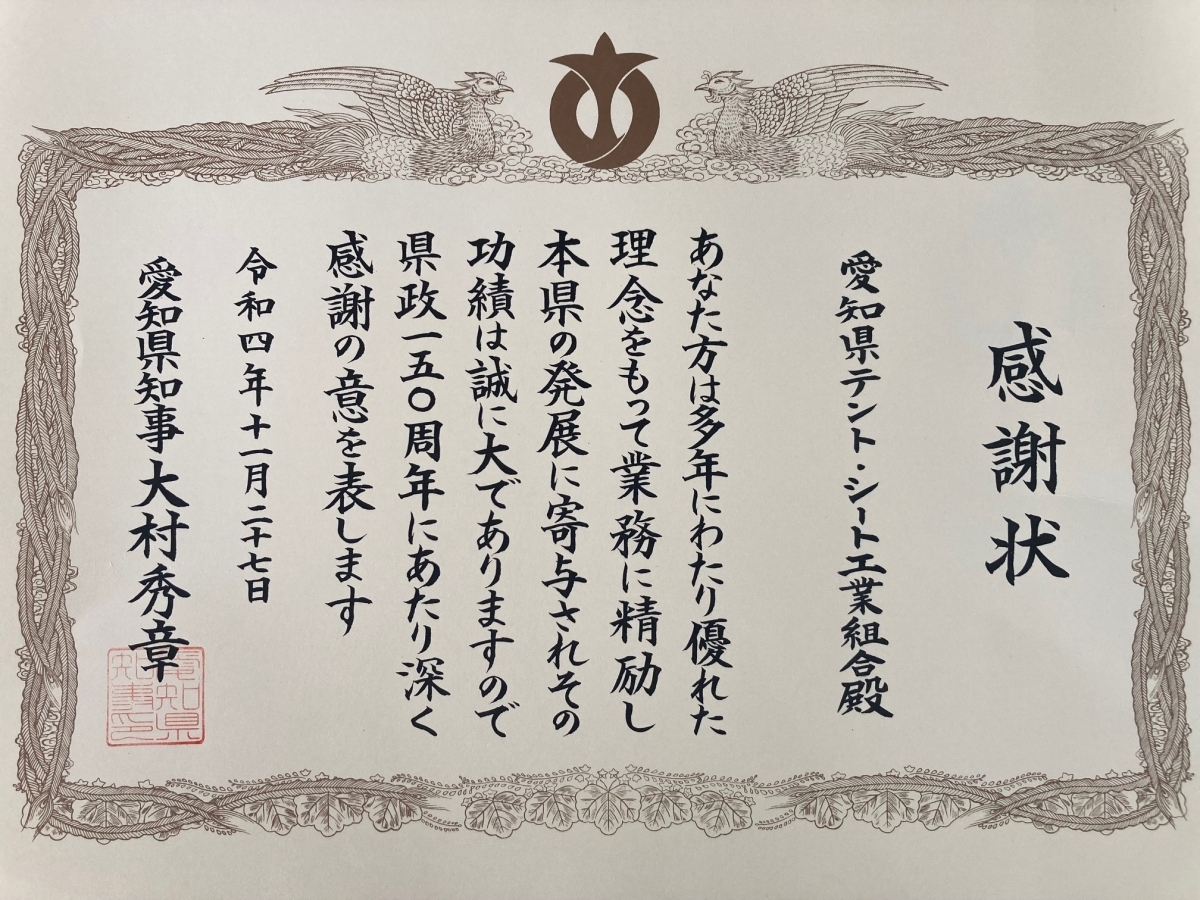 感謝状
愛知県テント・シート工業組合殿
あなた方は多年にわたり優れた
理念をもって業務に精励し
本県の発展に寄与されその
功績は誠に大でありますので
県政一五〇周年にあたり深く
感謝の意を表します
令和四年十一月二十七日
愛知県知事大村秀章
愛知県
知事之印